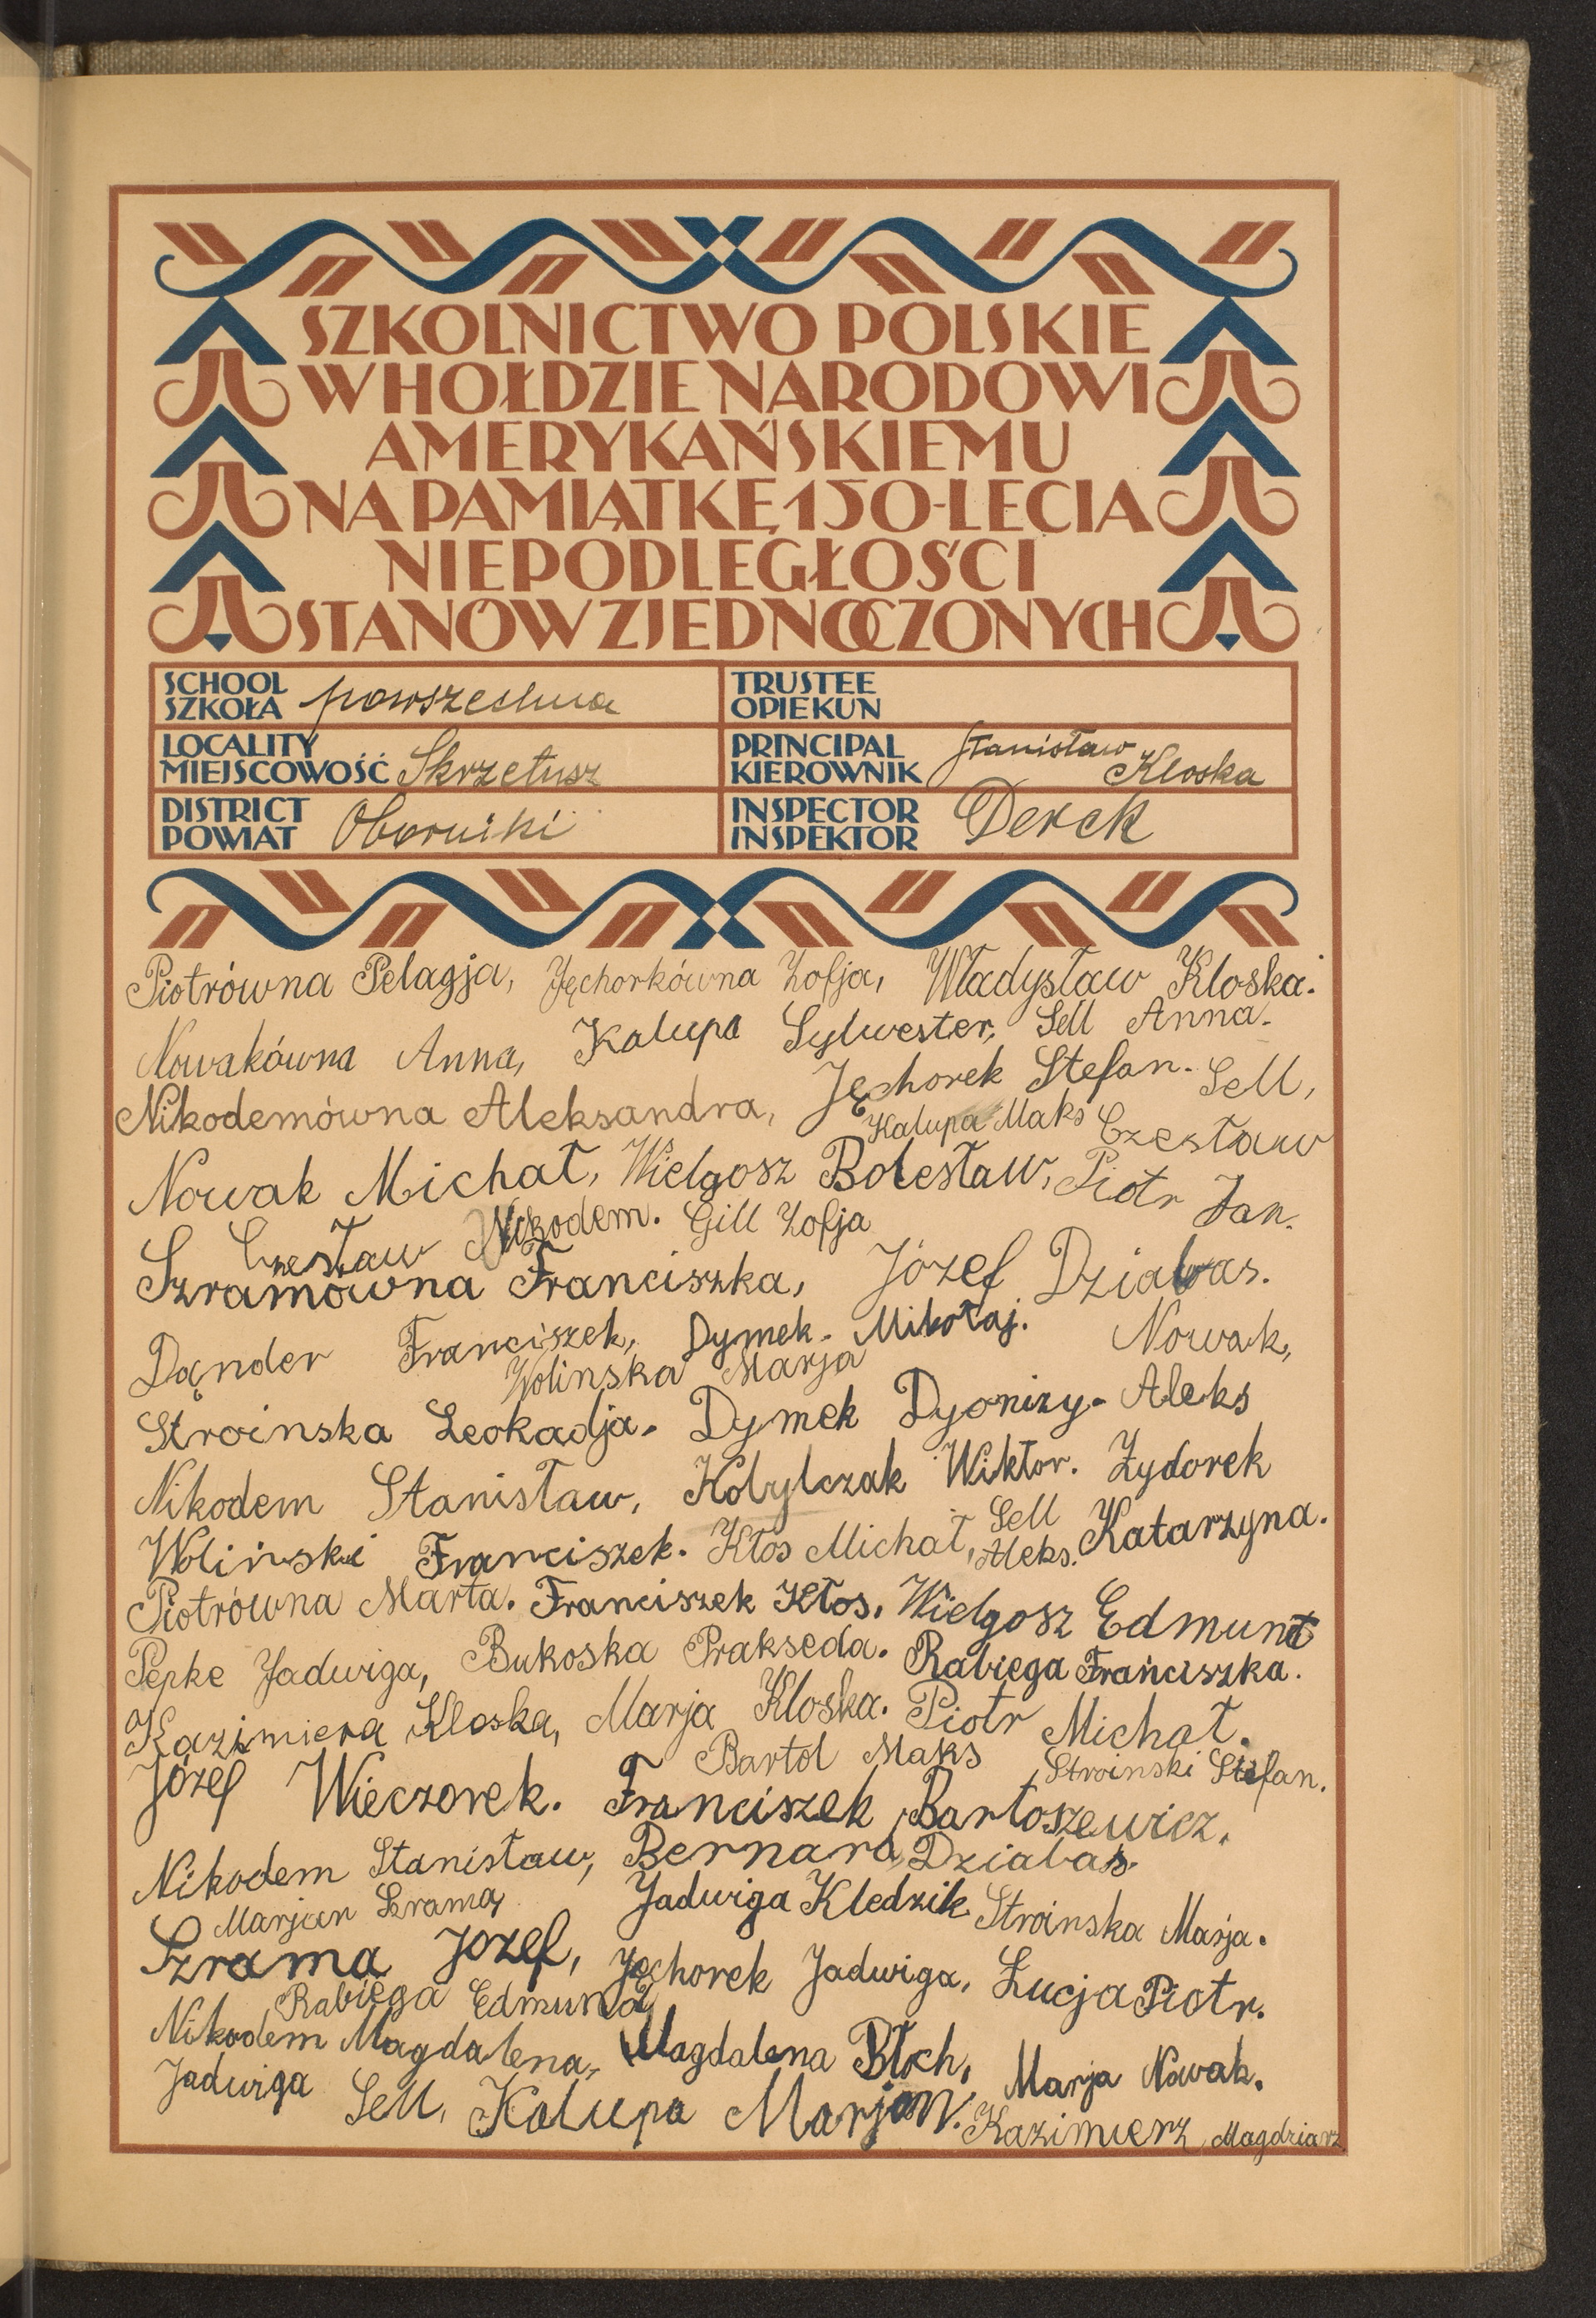 SZKOLNICTWO POLSKIE
W HOŁDZIE NARODOWI
AMERYKAŃSKIEMU
NA PAMIĄTKĘ 150-LECIA
NIEPODLEGŁOŚCI
STANÓW ZJEDNOCZONYCH
SCHOOL SZKOŁA powszechna
TRUSTEE OPIEKUN
LOCALITY MIEJSCOWOŚĆ Skrzetusz
PRINCIPAL KIEROWNIK Stanisław Kloska
DISTRICT POWIAT Oborniki
INSPECTOR INSPEKTOR Derek
Piotrówna Pelagja, Jęchorkówna Zofja, Władysław Kloska.
Nowakówna Anna, Kalupa Sylwester, Sell Anna.
Nikodemówna Aleksandra, Jęchorek Stefan. Sell,
Kalupa Maks Czesław
Nowak Michał, Wielgosz Bolesław, Piotr Jan.
Czesław Nikodem. Gill Zofja
Szramówna Franciszka, Józef Dziabas.
Dąnder Franciszek, Dymek. Mikołaj. Nowak,
Wolinska Marja
Stroinska Leokadja. Dymek Dyonizy. Aleks
Nikodem Stanisław, Kobylczak Wiktor. Zydorek
Woliński Franciszek. Kłos Michał, Sell Aleks. Katarzyna.
Piotrówna Marta. Franciszek Kłos. Wielgosz Edmunt
Pepke Jadwiga, Bukoska Prakseda. Rabiega Franciszka.
Kazimiera Kloska, Marja Kloska. Piotr Michał.
Bartol Maks Stroinski Stefan.
Józef Wieczorek. Franciszek Bartoszewicz.
Nikodem Stanisław, Bernard Dziabas.
Marjan Szrama, Jadwiga Kledzik Stroinska Marja.
Szrama Jozef, Jęchorek Jadwiga, Łucja Piotr.
Rabiega Edmund
Nikodem Magdalena, Magdalena Błoch, Marja Nowak.
Jadwiga Sell, Kalupa Marjan. Kazimierz Magdziarz